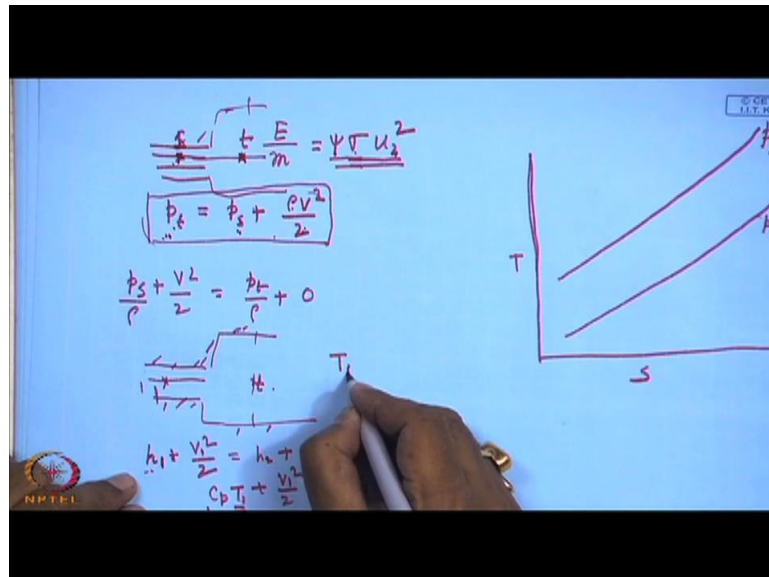 © CE
I.I.T. K
t E/m = ψ σ u₂²
p_t = p_s + ρV²/2
p_s/ρ + V²/2 = p_t/ρ + 0
1
t.
T₁
h₁ + V₁²/2 = h₂ +
C_p T₁ + V₁²/2
T
S
p
p
NPTEL